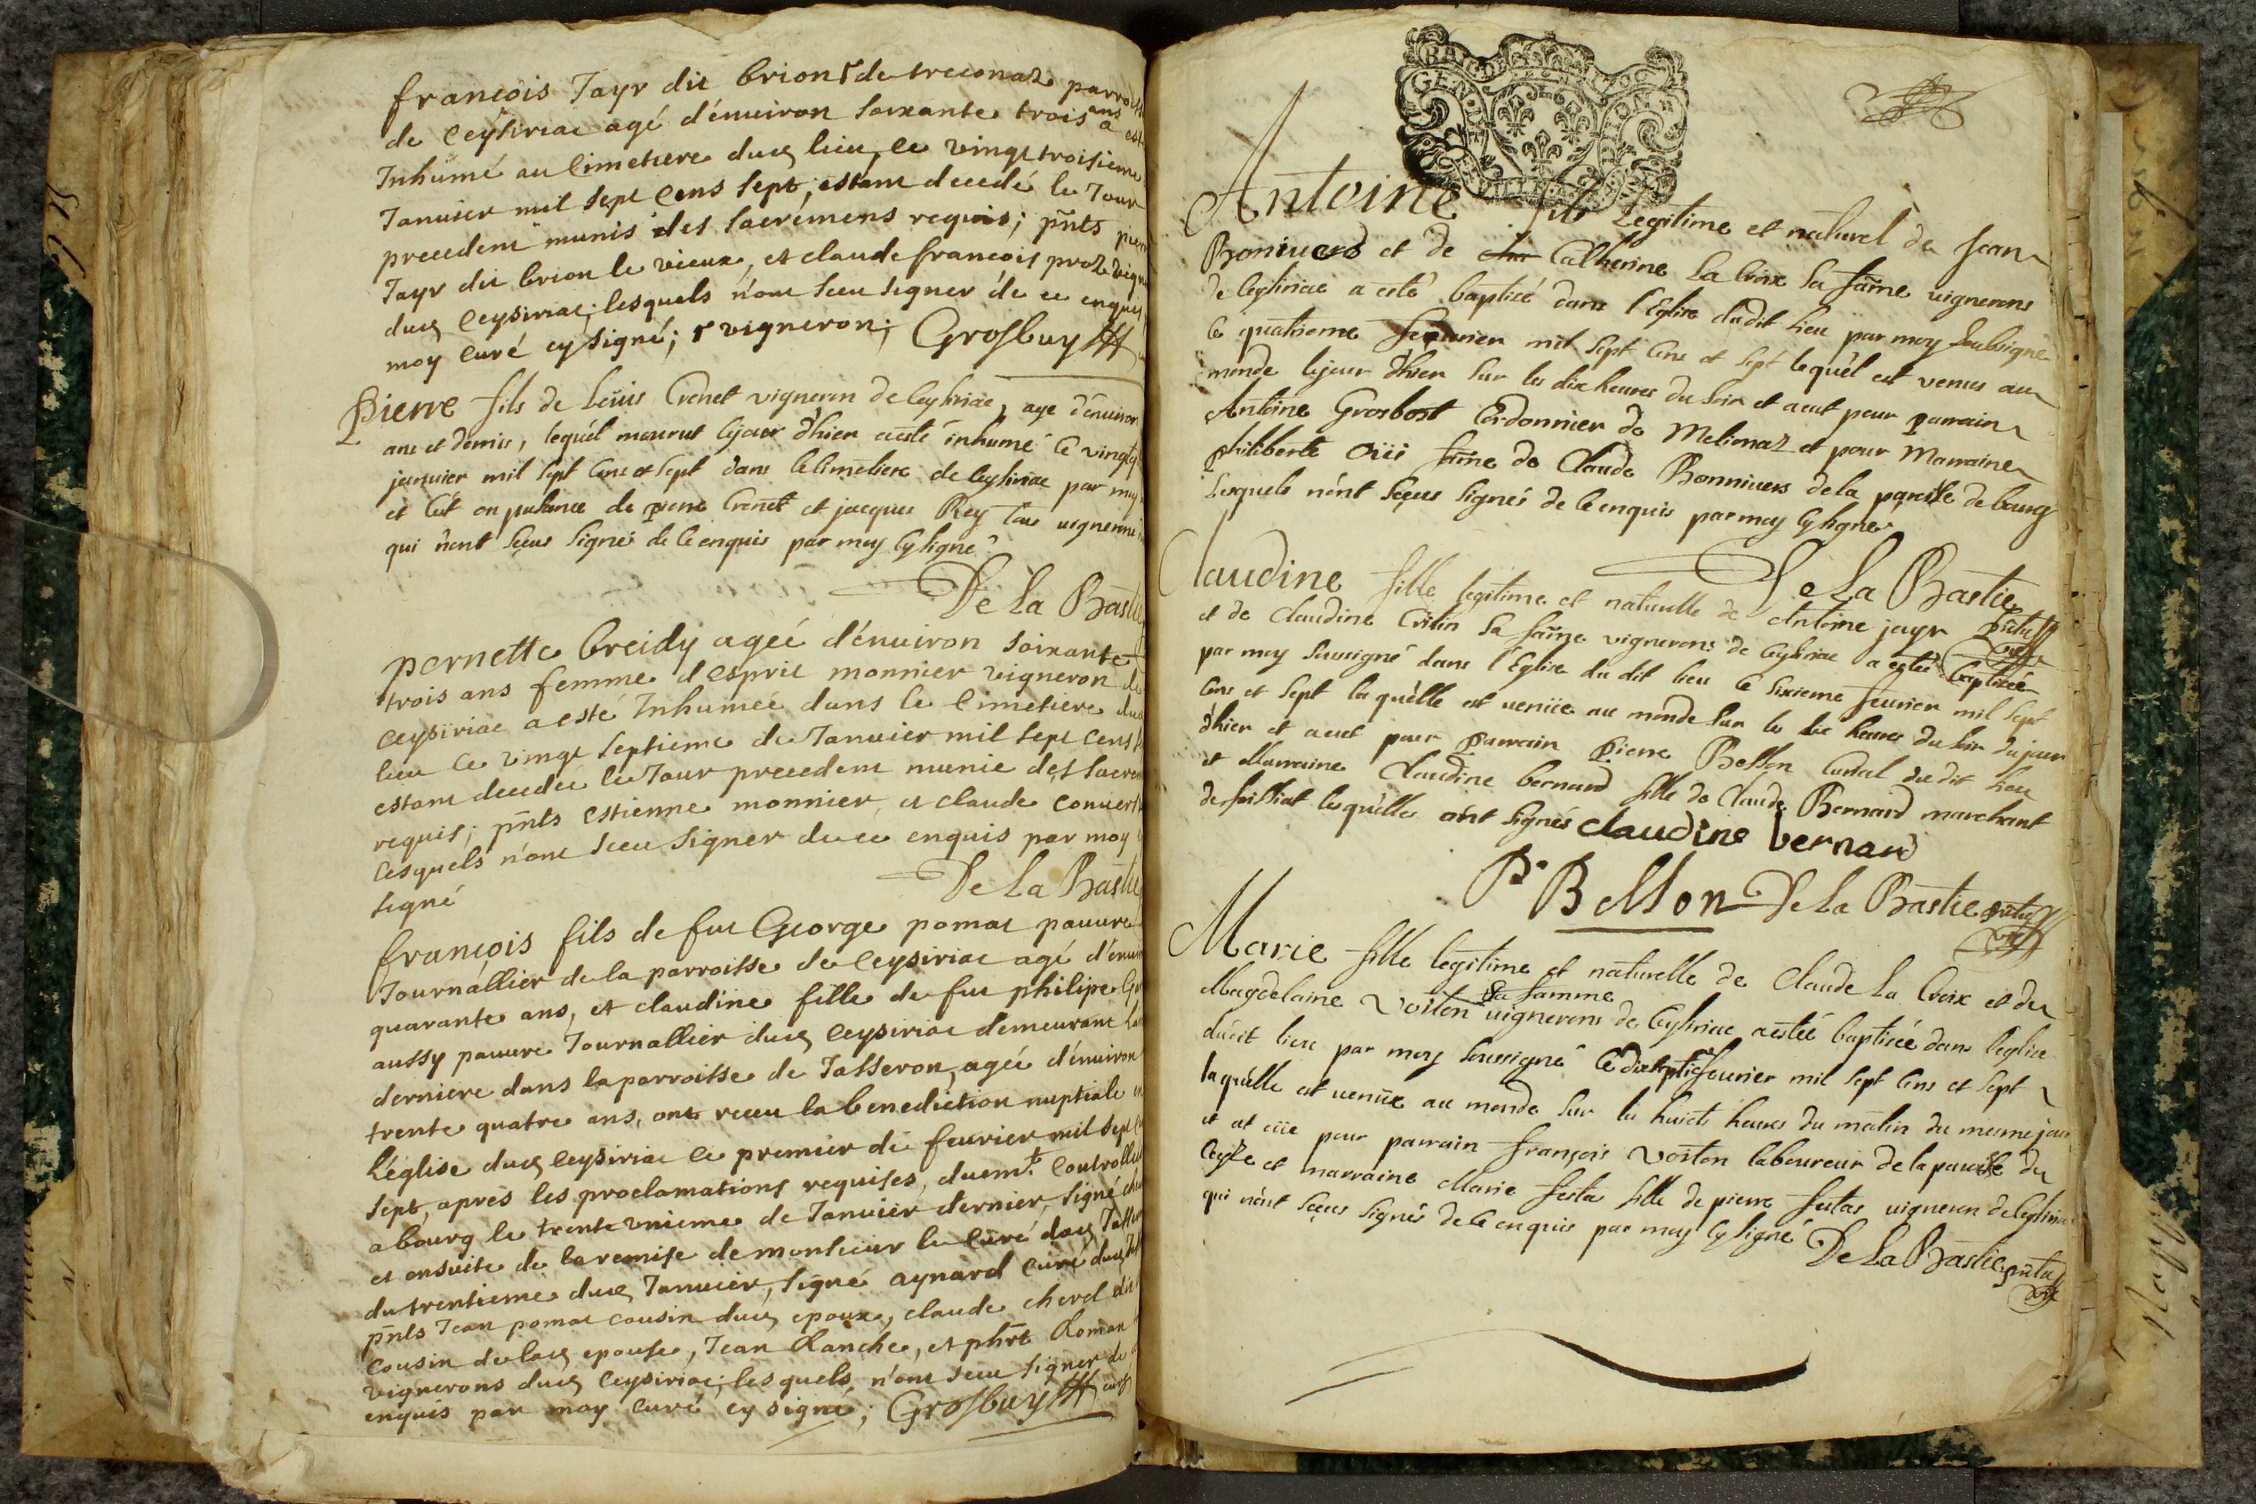 françois Jayr dit brion r de treconaz parro
de Ceysiriac agé d'énuiron soixante trois ans a est
Inhumé au Cimetiere dud lieu, ce vingt troisieme
Januier mil sept Cens sept; estant decedé le Jour
precedent munis des sacremens requis; pnts pierr
Jayr dit brion le vieux, et claude françois proz vigne
dud Ceysiriac; lesquels n'ont sceu signer de ce enquis
moy curé cy signé; r vigneron; Grosbuy
Pierre fils de Loüis Crenet vigneron de Ceysiriac, age d'enuiron
ans et demis, lequel mourut le jour d'hier a esté inhumé le vingt
januier mil sept Cens et sept dans le Cimetiere de Ceysiriac par moy
et Cest en presence de pierre Crenet et jacques Rey tous vignerons
qui n'ont sceus signés de Ce enquis par moy Cy signé
De La Bastie
pernette breidy ageé d'énuiron soixante
trois ans femme d'esprit monnier vigneron de
Ceysiriac a esté Inhumeé dans le Cimetiere dud
lieu Ce vingt septieme de Januier mil sept Cens s
estant decedée le Jour precedent munie des sacrem
requis; pnts estienne monnier, et claude conuert
lesquels n'ont sceu signer de ce enquis par moy
signé
De La Bastie
françois fils de fut George pomat pauure
Journallier de la parroisse de Ceysiriac agé d'énuir
quarante ans, et claudine fille de fut philipe Gr
aussy pauure Journallier dud Ceysiriac demeurant
derniere dans la parroisse de Jasseron, agée d'énuiron
trente quatre ans, ont receu la benediction nuptiale
l'église dud Ceysiriac ce premier de feurier mil sept
sept, apres les proclamations requises, duemt. Controllé
a bourg le trente vnieme de Januier dernier, signé
et ensuite de la remise de monsieur le Curé dud Jasser
du trentieme dud Januier, signé aynard Curé dud
pnts Jean pomat cousin dud epoux, claude cherel
cousin de lad epouse, Jean Ranche, et phrt Roman
vignerons dud Ceysiriac; lesquels n'ont sceu signer de
enquis par moy curé cy signé; Grosbuy curé
Antoine fils Legitime et naturel de Jean
Boniuers et de Catherine La Croix sa fame vignerons
de Ceysiriac a esté baptisé dans l'Eglise dudit lieu par moy soussigné
le quatrieme feburier mil sept Cens et sept lequel est venus au
monde le jour d'hier sur les dix heures du soir et a eut pour parrain
Antoine Grosbost Cordonnier de Melionaz et pour Marraine
philiberte fame de Claude Bonniuers de la paroisse de bourg
lesquels n'ont sceus signés de Ce enquis par moy Cy signé
De La Bastie
Claudine fille legitime et naturelle de Antoine jayr
et de Claudine Critin sa fame vignerons de Ceysiriac a estée baptisée
par moy soussigné dans l'Eglise du dit lieu le sixieme feurier mil sept
Cens et sept laquelle est venüe au monde sur les dix heures du soir du jour
d'hier et a eut pour parrain pierre Bellon du dit lieu
et Marraine Claudine bernard fille de Claude Bernard marchant
de lesquelles ont signés claudine bernard
P. Bellon De La Bastie
Marie fille legitime et naturelle de Claude La Croix et de
Magdelaine Voiton sa famme vignerons de Ceysiriac a estée baptisée dans l'eglise
dudit lieu par moy soussigné le dixseptie feurier mil sept Cens et sept
laquelle est venüe au monde sur les huict heures du matin du mesme jour
et at eüe pour parrain françois Voiton laboureur de la paroisse de
et marraine Marie festas fille de pierre festas vigneron de Ceysiriac
qui n'ont sceus signés de Ce enquis par moy Cy signé
De La Bastie